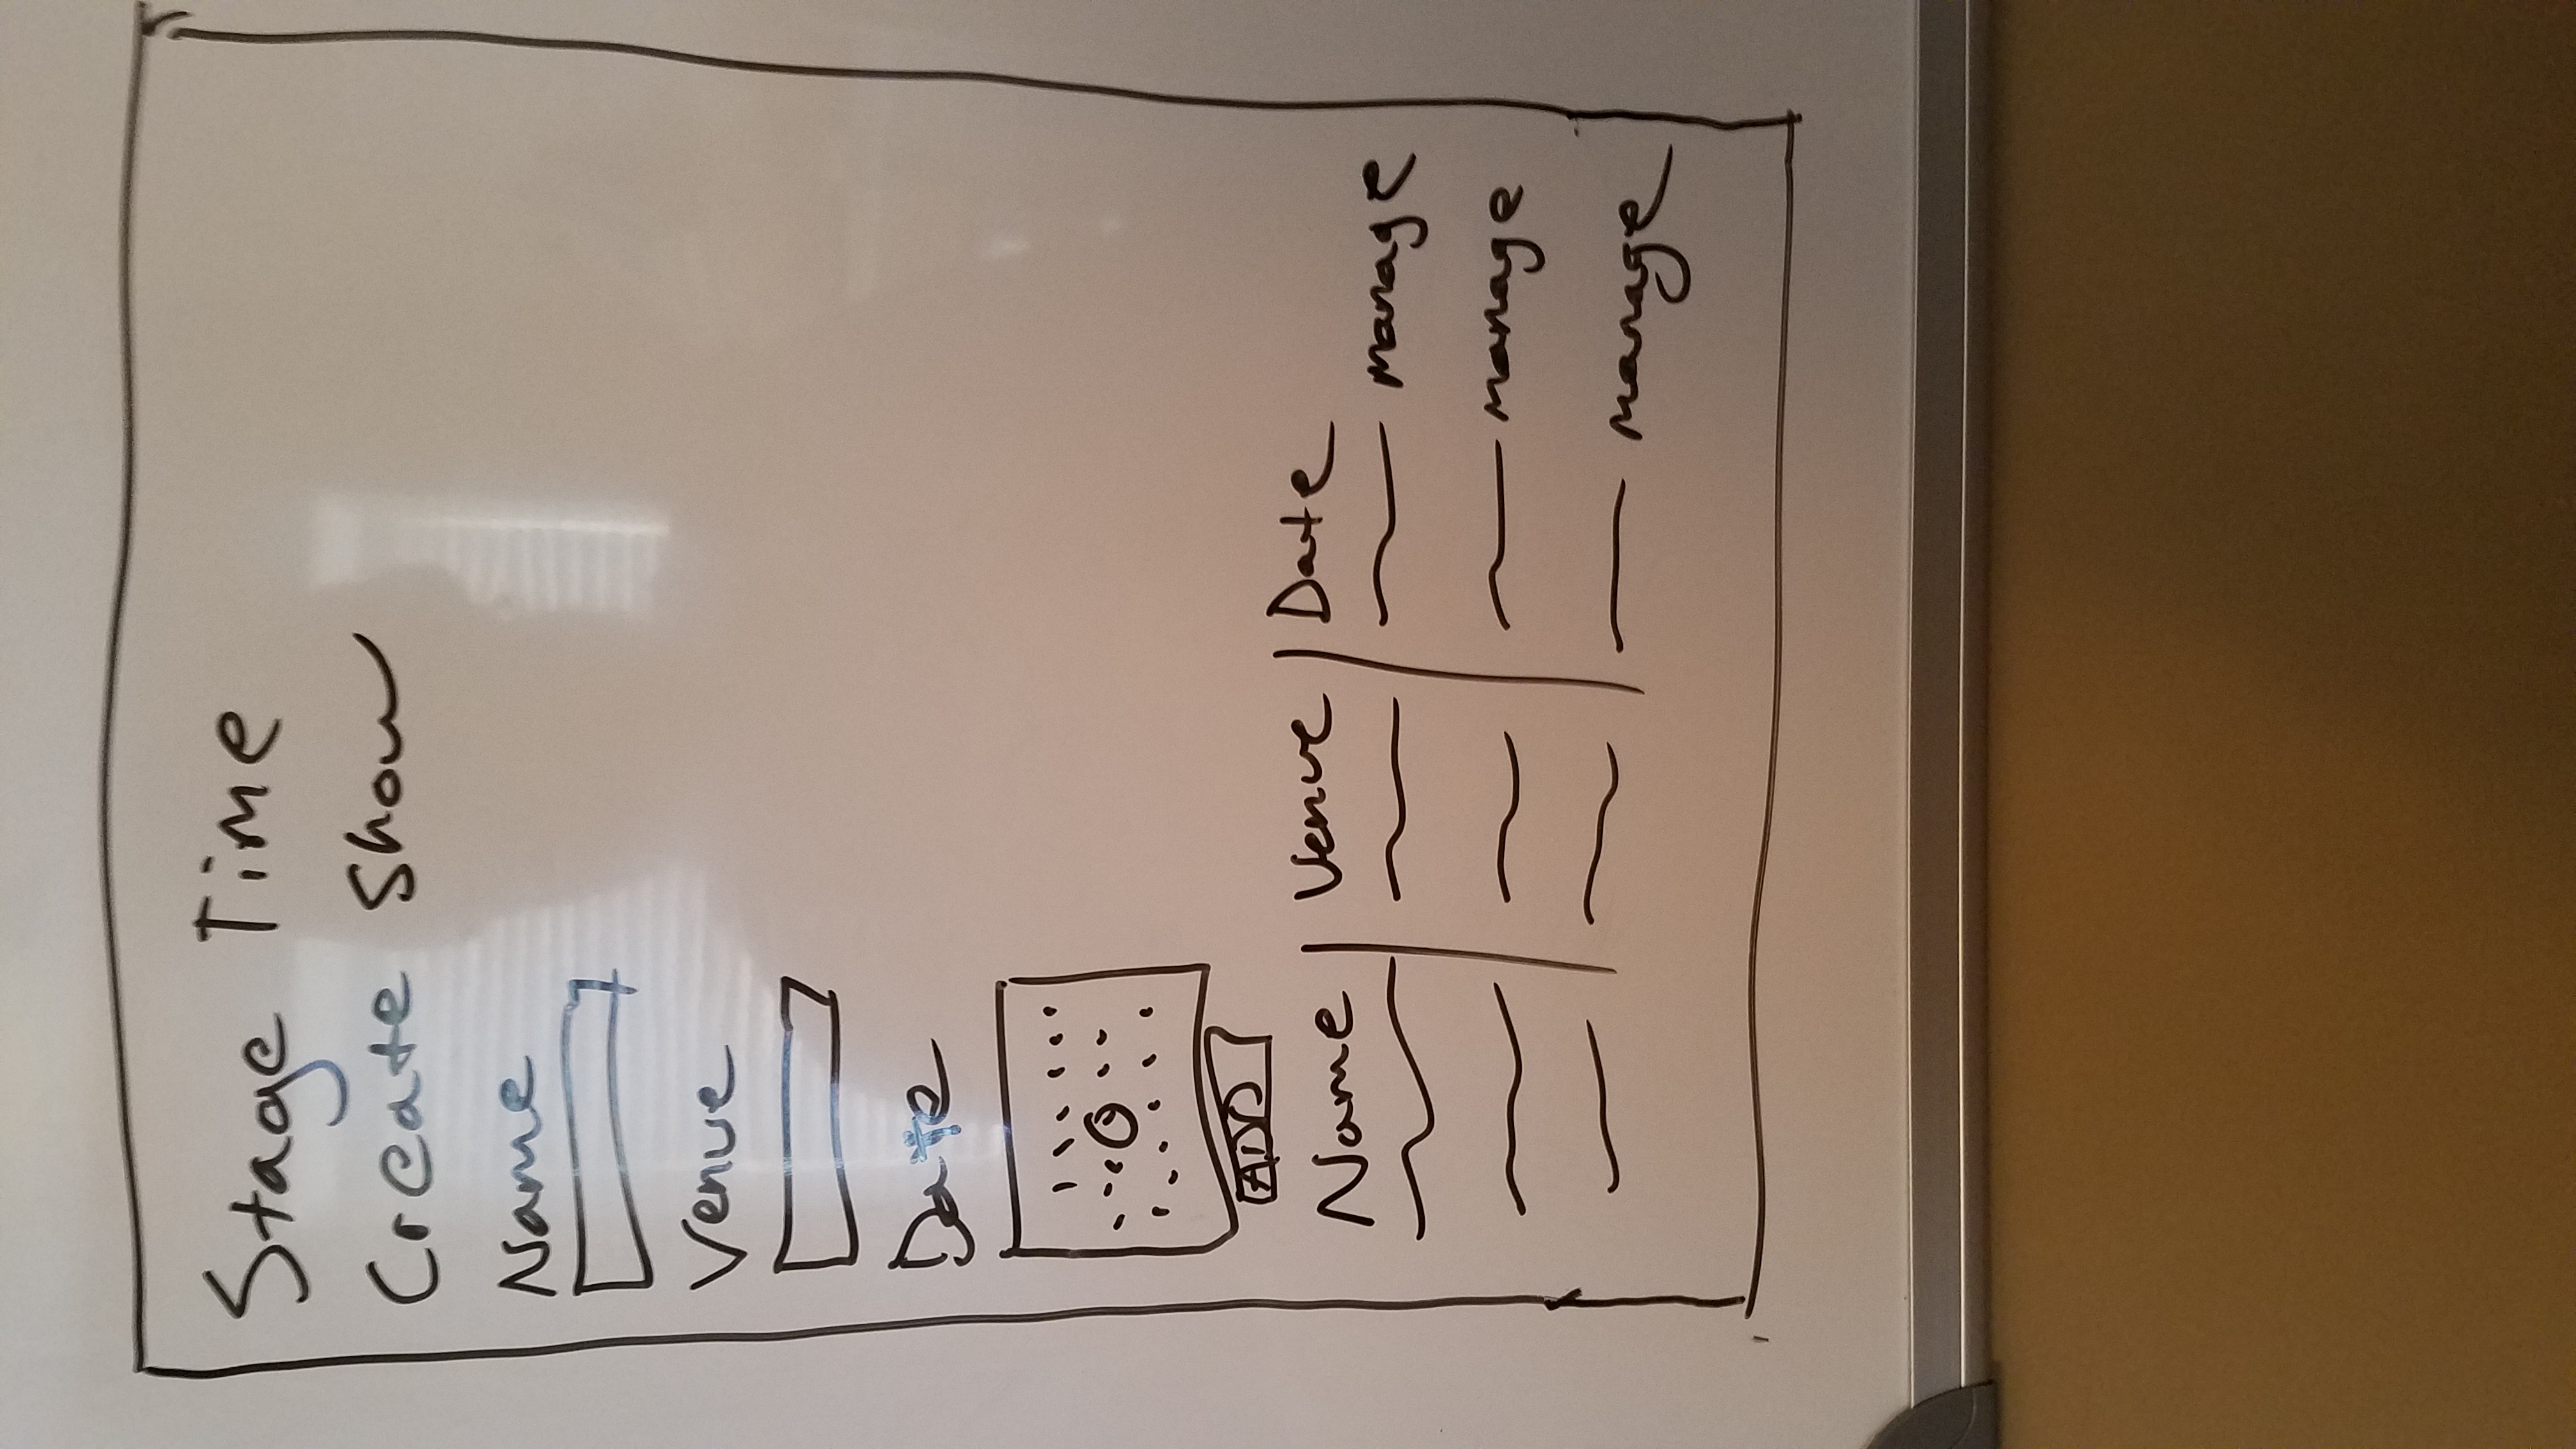 Stage Time
Create Show
Name
Venue
Date
ADD
Name Venue Date
manage
manage
manage